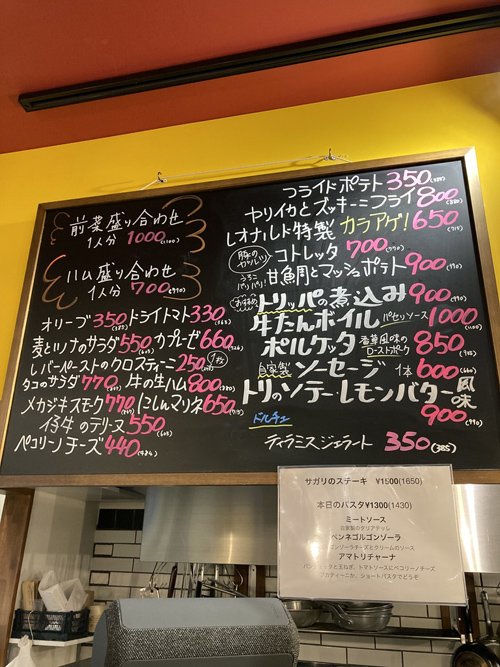 前菜盛り合わせ
1人分 1000(1100)
ハム盛り合わせ
1人分 700(770)
オリーブ 350(385) ドライトマト 330(363)
麦とツナのサラダ 550(605) カプレーゼ 660(726)
レバーペーストのクロスティーニ 250
タコのサラダ 770 牛の生ハム 800(880)
メカジキスモーク 770 にしんマリネ 650(715)
イチジ牛のテリーヌ 550(605)
ペコリーノチーズ 440(484)
フライドポテト 350(385)
ヤリイカとズッキーニフライ 800(880)
レオナルド特製 カラアゲ! 650(715)
豚ロースのカツレツ コトレッタ 700(770)
うろこパリパリ! 甘鯛とマッシュポテト 900(990)
おすすめ トリッパの煮込み 900(990)
牛たんボイル パセリソース 1000(1100)
ポルケッタ 香草風味のローストポーク 850(935)
自家製 ソーセージ 1本 600(660)
トリのソテーレモンバター風味
900(990)
ドルチェ
ティラミスジェラート 350(385)
サガリのステーキ ¥1500(1650)
本日のパスタ¥1300(1430)
ミートソース
自家製のタリアテッレ
ペンネゴルゴンゾーラ
ゴルゴンゾーラチーズとクリームのソース
アマトリチャーナ
パンチェッタと玉ねぎ、トマトソースにペコリーノチーズ
ブカティーニか、ショートパスタでどうぞ